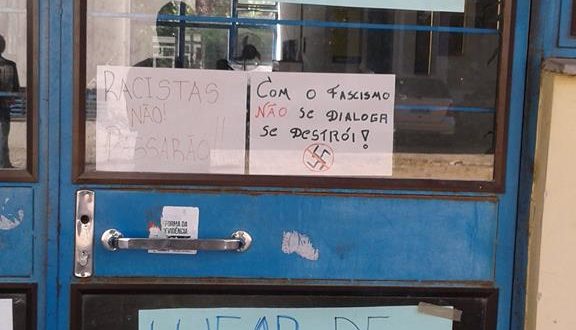 RACISTAS
NÃO!
PASSARÃO!!!
COM O FASCISMO
NÃO SE DIALOGA
SE DESTRÓI!
FORMA DA
EVIDÊNCIA
LUGAR DE